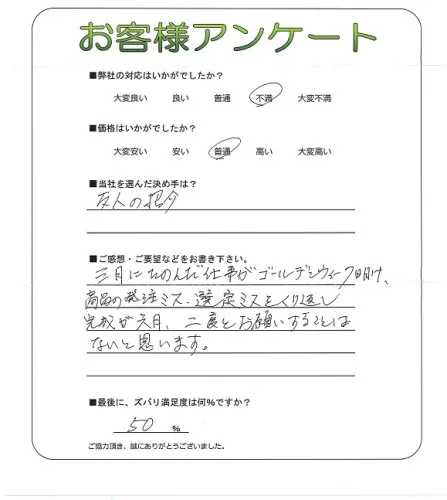 お客様アンケート
■弊社の対応はいかがでしたか？
大変良い 良い 普通 不満 大変不満
■価格はいかがでしたか？
大変安い 安い 普通 高い 大変高い
■当社を選んだ決め手は？
友人の紹介
■ご感想・ご要望などをお書き下さい。
三月にたのんだ仕事がゴールデンウィーク明け、
商品の発注ミス、選定ミスをくり返し
完成が六月、二度とお願いすることは
ないと思います。
■最後に、ズバリ満足度は何％ですか？
50 ％
ご協力頂き、誠にありがとうございました。